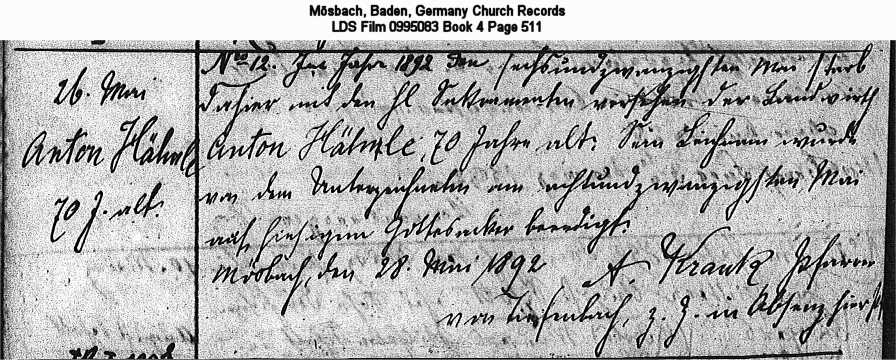 Mösbach, Baden, Germany Church Records
LDS Film 0995083 Book 4 Page 511
26. Mai
Anton Hähnle
70 J. alt.
Nro 12. Im Jahre 1892 den sechsundzwanzigsten Mai starb
dahier mit den hl. Sakramenten versehen der Landwirth
Anton Hähnle, 70 Jahre alt. Sein Leichnam wurde
von dem Unterzeichneten am achtundzwanzigsten Mai
auf hiesigem Gottesacker beerdigt.
Mösbach, den 28. Mai 1892
A. Krautz Pfarrer
von Tiefenbach, z. Z. in Absenz hier